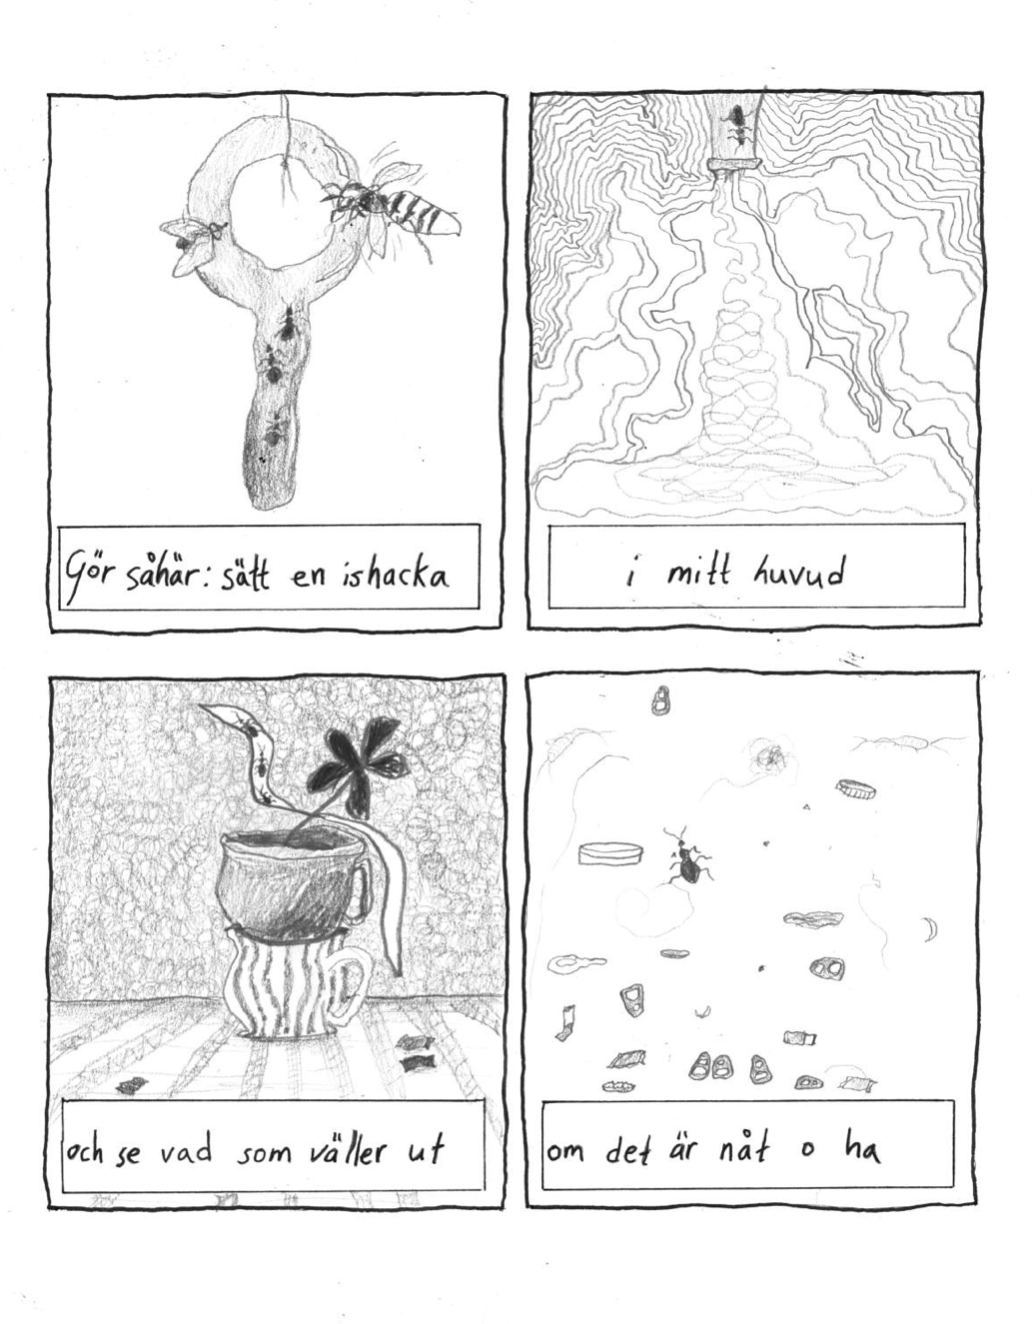 Gör såhär: sätt en ishacka
i mitt huvud
och se vad som väller ut
om det är nåt o ha